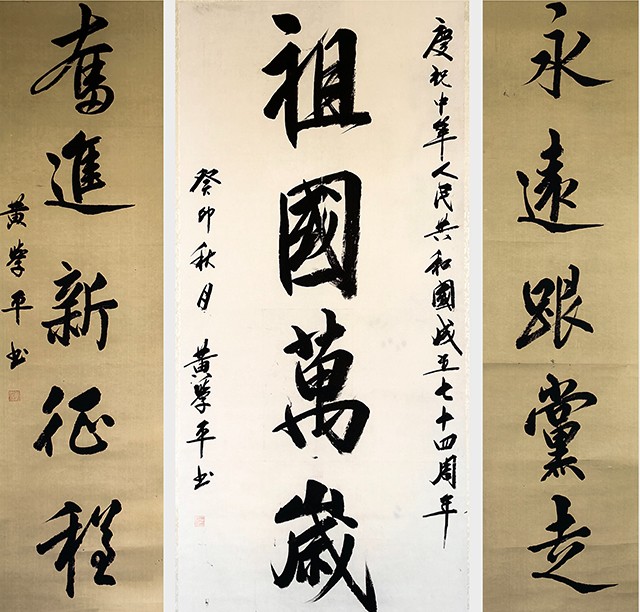 永遠跟黨走
慶祝中華人民共和國成立七十四周年
祖國萬歲
癸卯秋月 黃學平书
奮進新征程
黃學平书